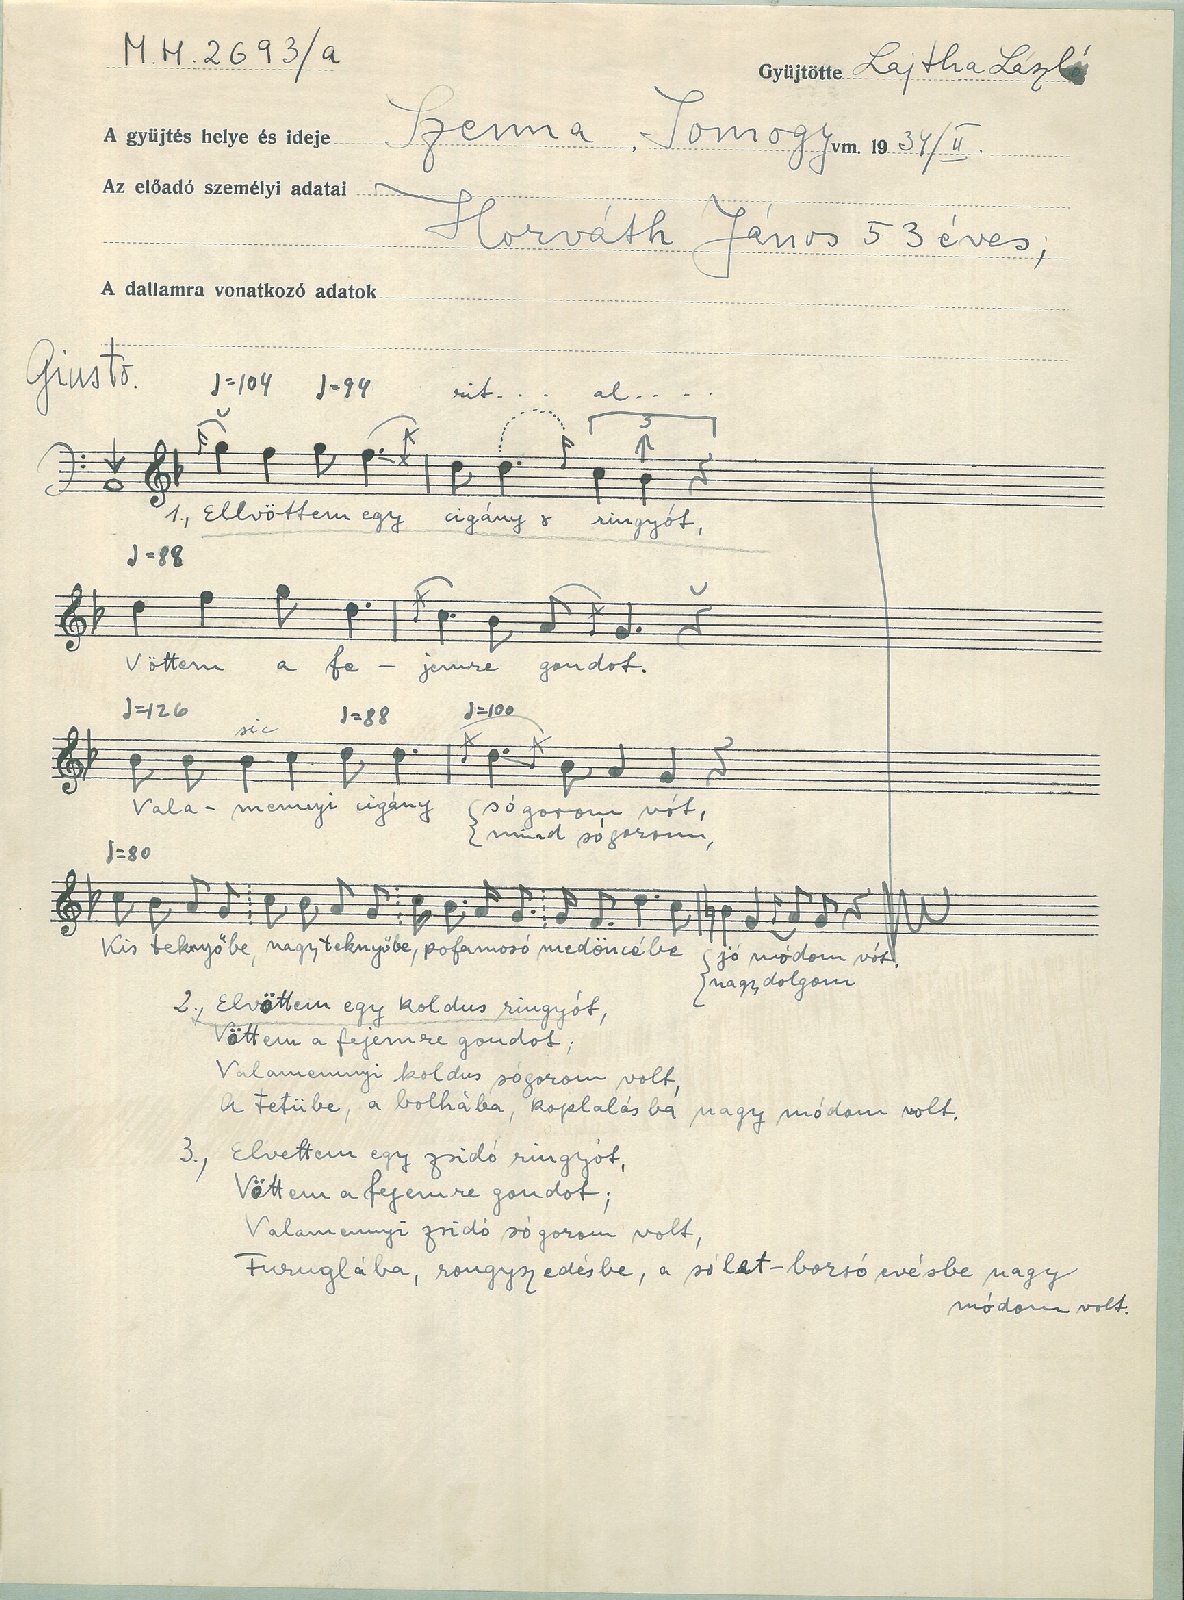 M.H. 2693/a
Gyüjtötte Lajtha László
A gyüjtés helye és ideje Szenna, Somogy vm. 1934/II.
Az előadó személyi adatai
Horváth János 53 éves,
A dallamra vonatkozó adatok
Giusto.
♩=104 ♩=94 rit... al....
3
1., Ellvöttem egy cigány ringyót,
♩=88
Vöttem a fe - jemre gondot.
♩=126 sic ♩=88 ♩=100
Vala - mennyi cigány { sógorom vót,
{ mind sógorom,
♩=80
Kis teknyőbe, nagy teknyőbe, pofamosó medöncébe { jó módom vót.
{ nagy dolgom
2., Elvöttem egy koldus ringyót,
Vöttem a fejemre gondot;
Valamennyi koldus sógorom volt,
A tetübe, a bolhába, koplalásba nagy módom volt.
3., Elvettem egy zsidó ringyót,
Vöttem a fejemre gondot;
Valamennyi zsidó sógorom volt,
Furuglába, rongyszedésbe, a sólet-borsó evésbe nagy
módom volt.